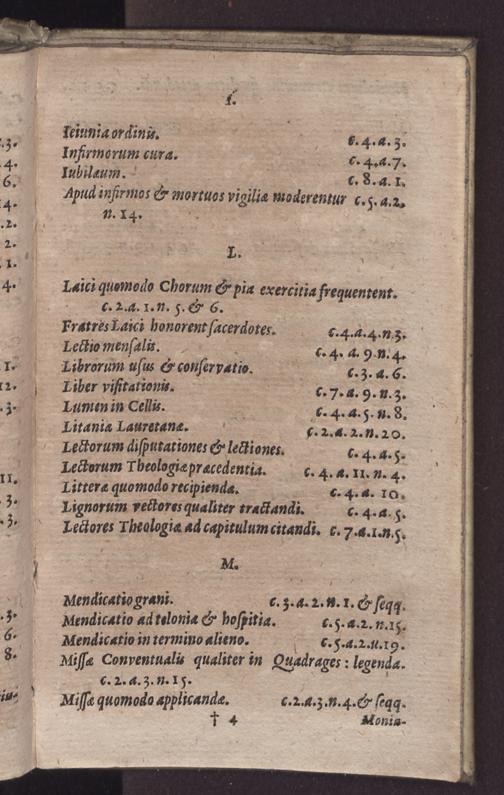 I.
Ieiunia ordinis. c. 4. a. 3.
Infirmorum cura. c. 4. a. 7.
Iubilæum. c. 8. a. 1.
Apud infirmos & mortuos vigiliæ moderentur c. 5. a. 2.
n. 14.
L.
Laici quomodo Chorum & pia exercitia frequentent.
c. 2. a. 1. n. 5. & 6.
Fratres Laici honorent sacerdotes. c. 4. a. 4. n. 3.
Lectio mensalis. c. 4. a. 9. n. 4.
Librorum usus & conservatio. c. 3. a. 6.
Liber visitationis. c. 7. a. 9. n. 3.
Lumen in Cellis. c. 4. a. 5. n. 8.
Litaniæ Lauretanæ. c. 2. a. 2. n. 20.
Lectorum disputationes & lectiones. c. 4. a. 5.
Lectorum Theologiæ præcedentia. c. 4. a. 11. n. 4.
Litteræ quomodo recipiendæ. c. 4. a. 10.
Lignorum vectores qualiter tractandi. c. 4. a. 5.
Lectores Theologiæ ad capitulum citandi. c. 7. a. 1. n. 5.
M.
Mendicatio grani. c. 3. a. 2. n. 1. & seqq.
Mendicatio ad telonia & hospitia. c. 5. a. 2. n. 15.
Mendicatio in termino alieno. c. 5. a. 2. u. 19.
Missæ Conventualis qualiter in Quadrages: legenda.
c. 2. a. 3. n. 15.
Missæ quomodo applicandæ. c. 2. a. 3. n. 4. & seqq.
† 4 Monia-